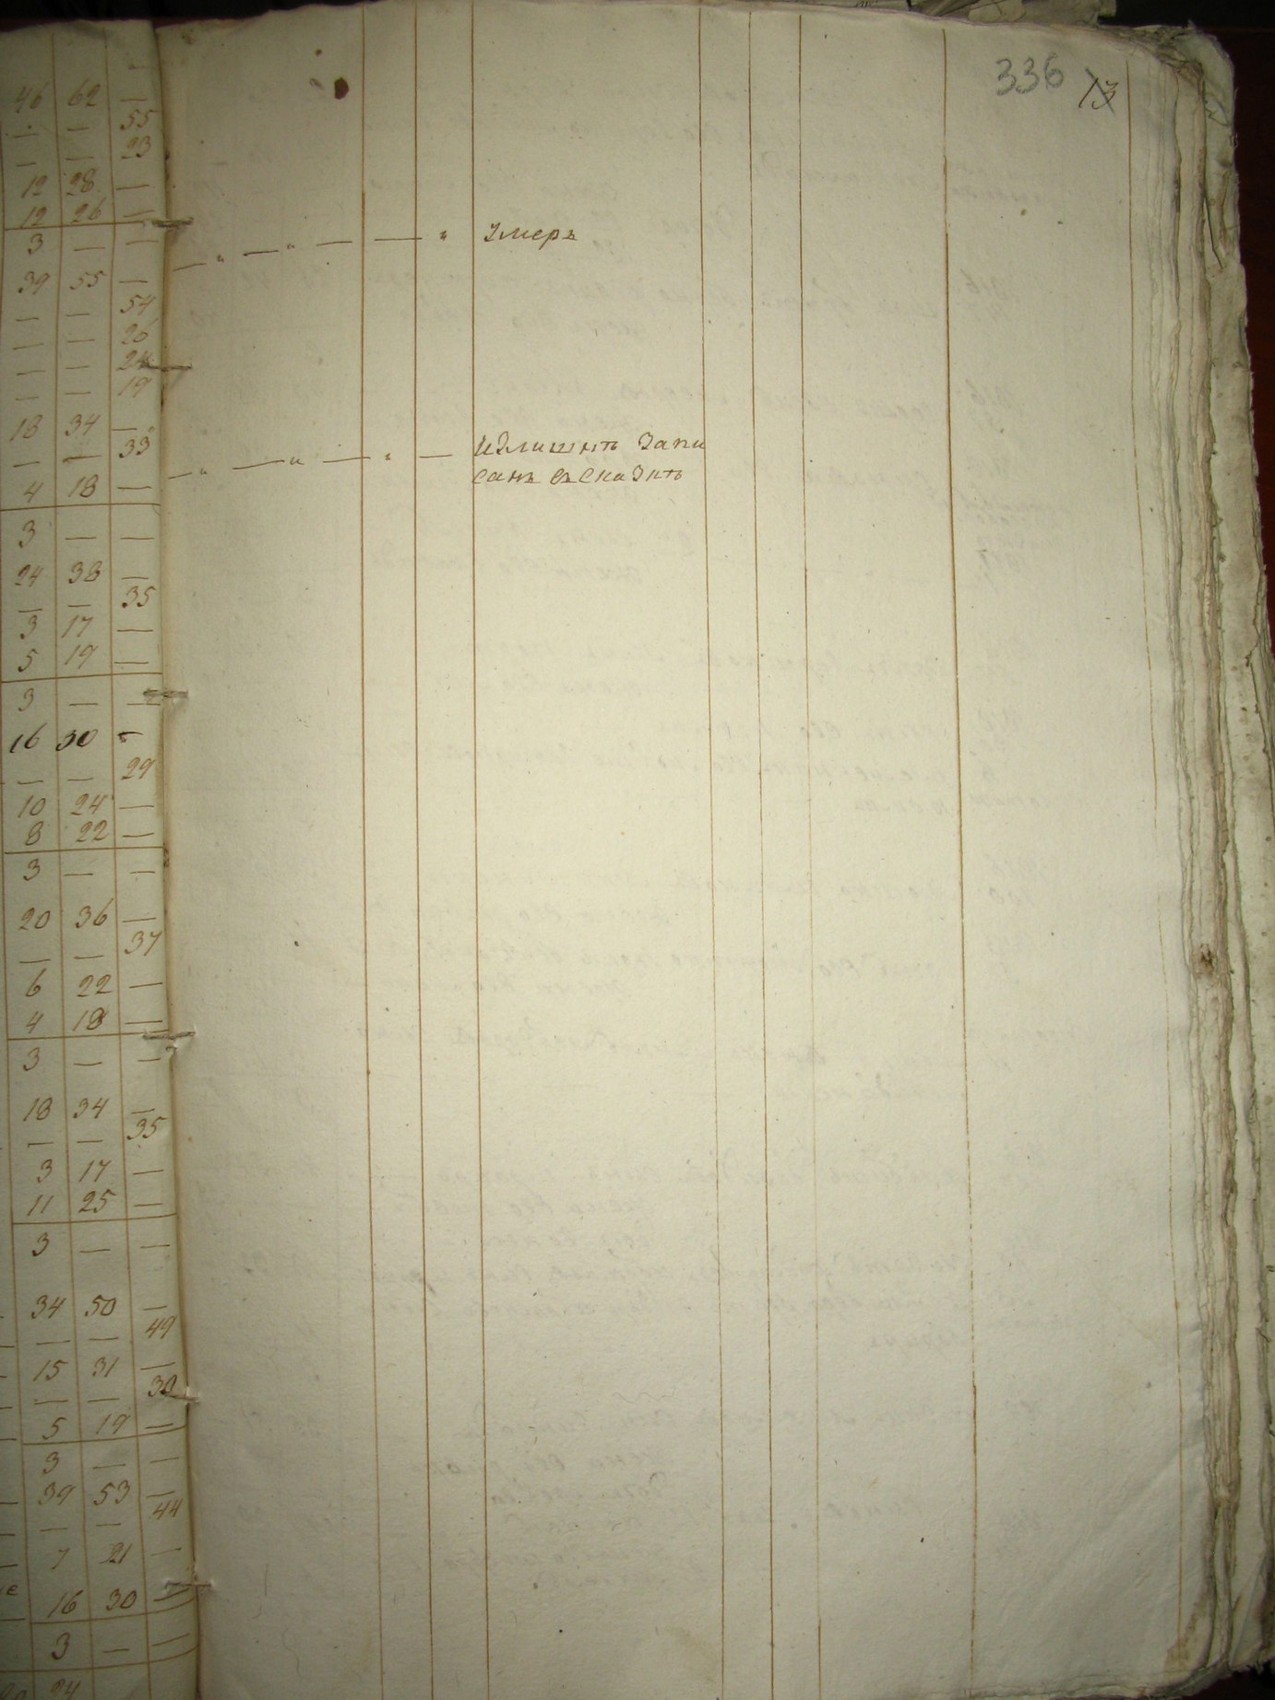 336 13
46 62 —
— — 55
— — 23
12 28 —
12 26 —
3 — —
39 55 —
— — 54
— — 26
— — 24
— — 19
18 34 —
— — 33
4 18 —
3 — —
24 38 —
— — 35
3 17 —
5 19 —
3 — —
16 30 —
— — 29
10 24 —
8 22 —
3 — —
20 36 —
— — 37
6 22 —
4 18 —
3 — —
18 34 —
— — 35
3 17 —
11 25 —
3 — —
34 50 —
— — 49
15 31 —
— — 30
5 19 —
3 — —
39 53 —
— — 44
7 21 —
16 30 —
3 — —
24
— " — " — — " умеръ
— " — " — " — Излишнѣ запи
санъ въ сказкѣ